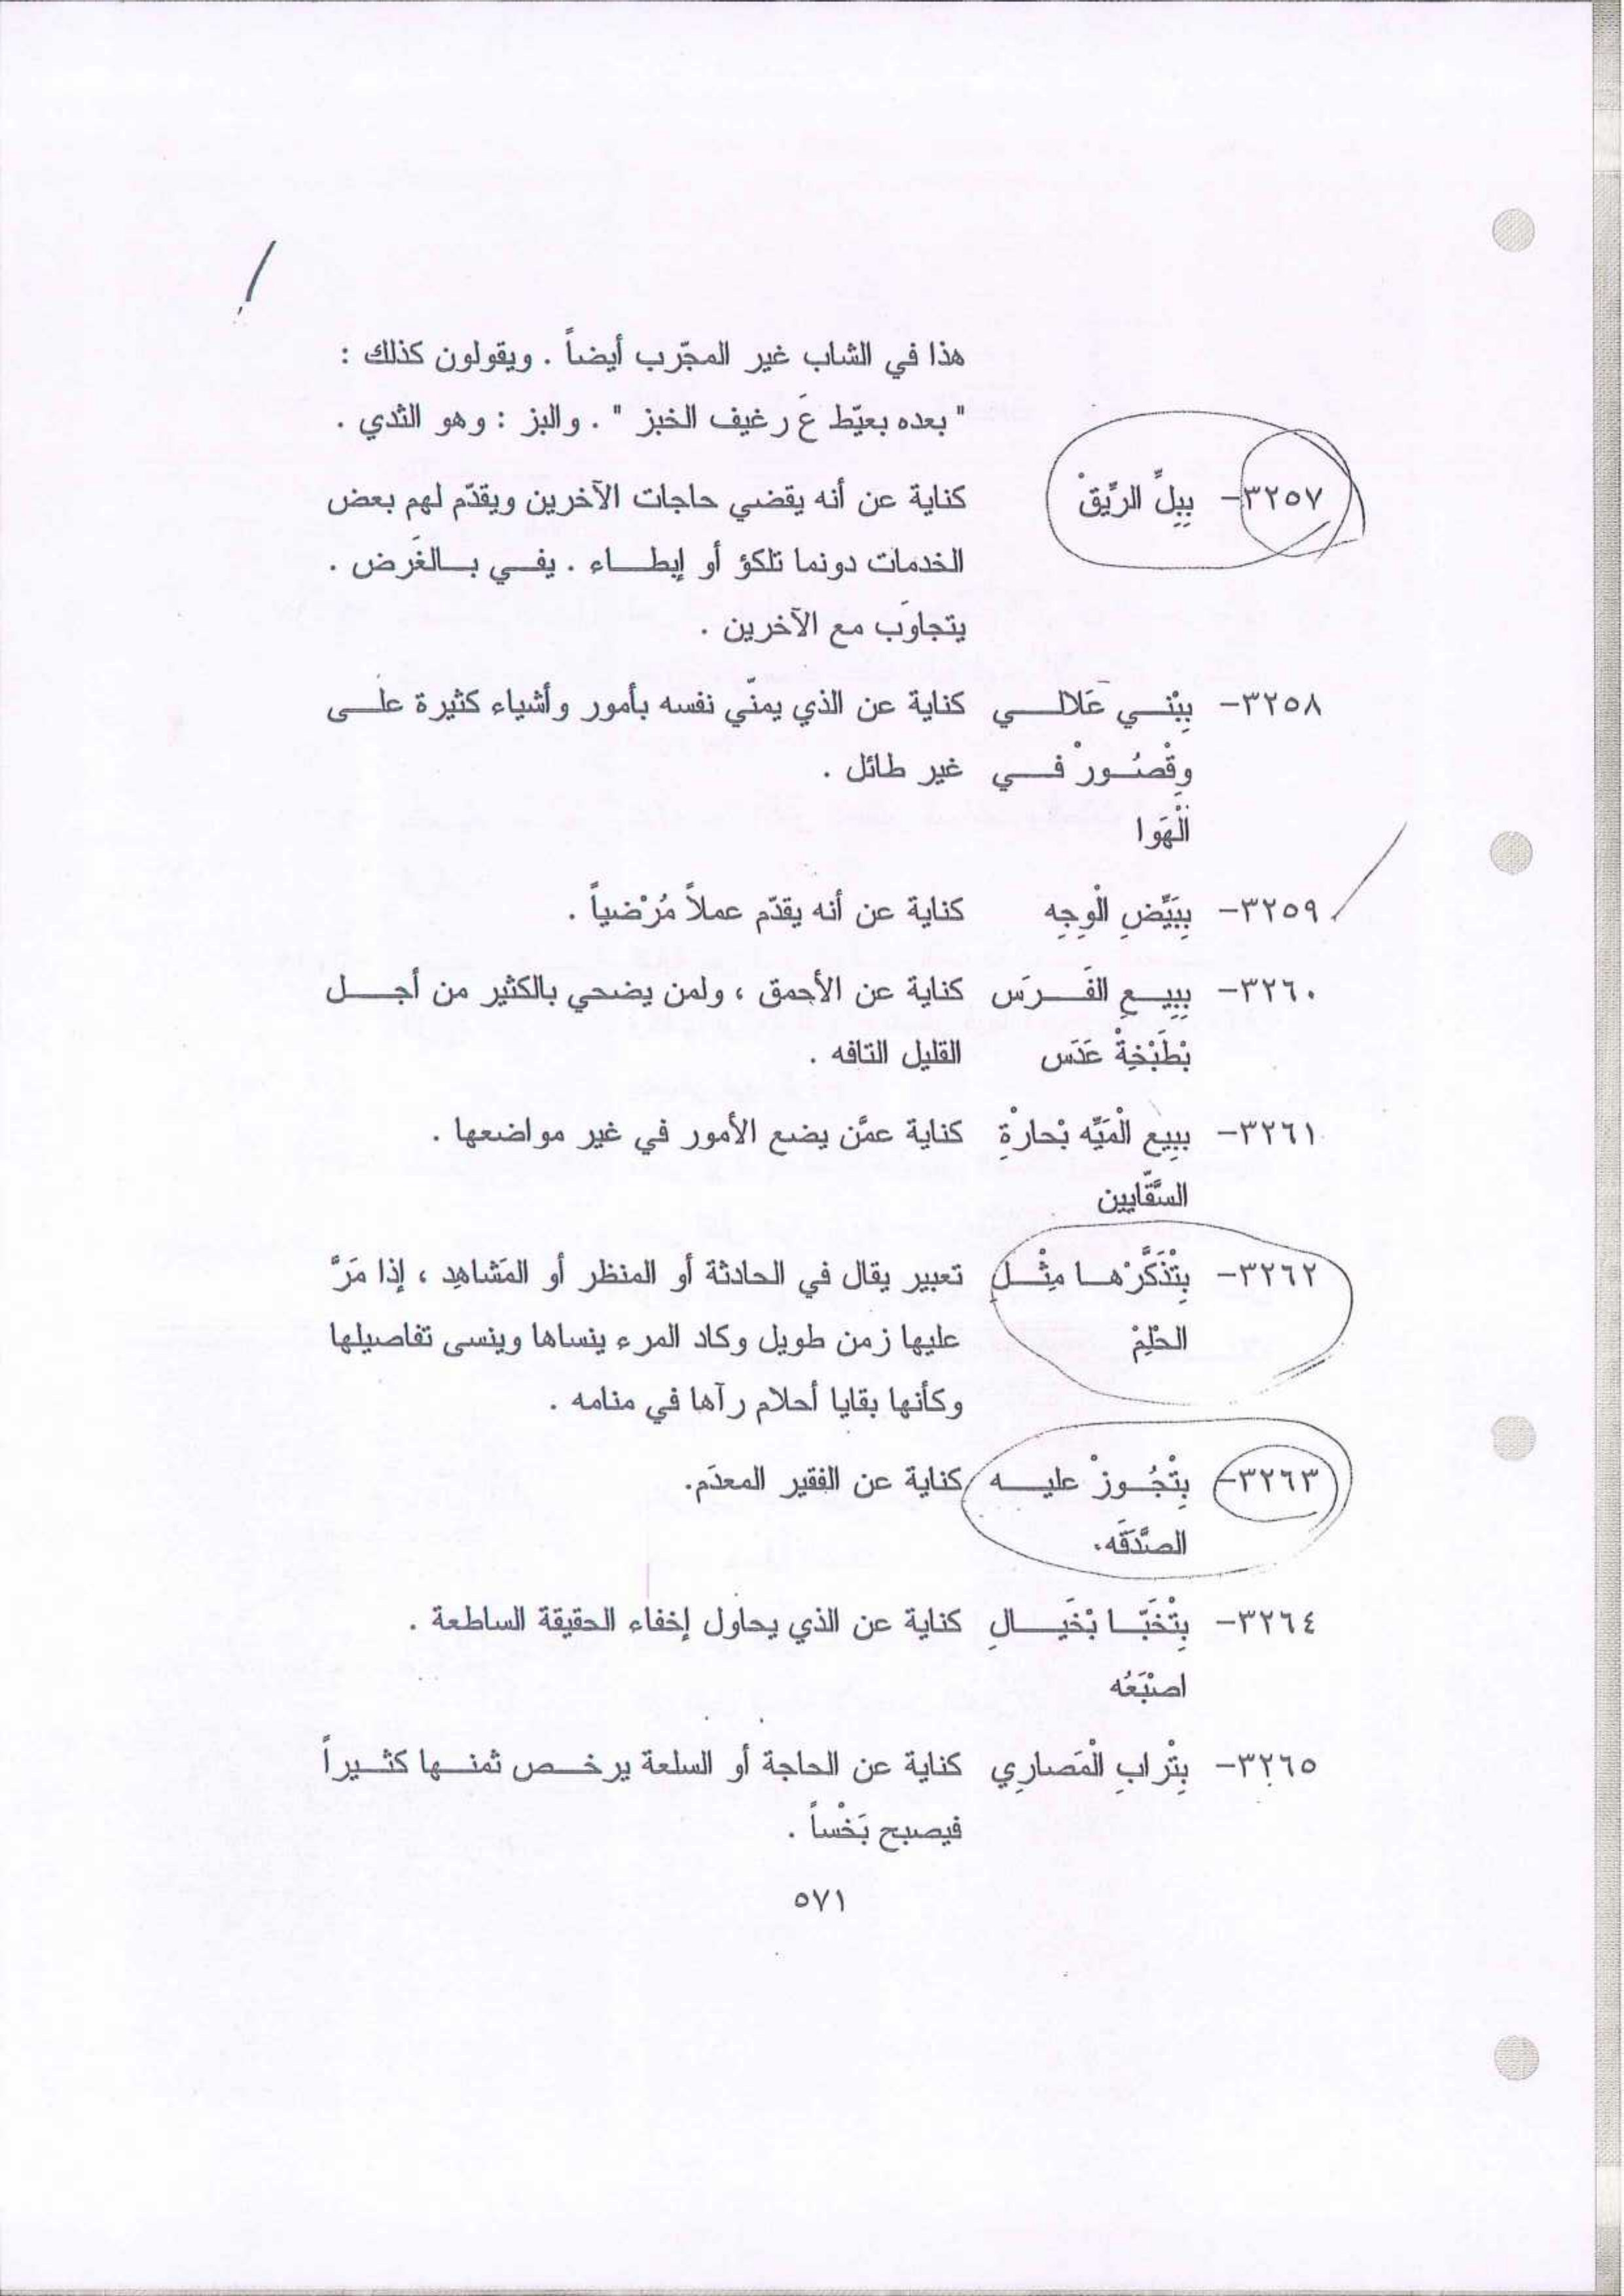 هذا في الشاب غير المجّرب أيضاً . ويقولون كذلك :
" بعده بعيّط عَ رغيف الخبز " . والبز : وهو الثدي .
٣٢٥٧- بِبِلِّ الرِّيقْ كناية عن أنه يقضي حاجات الآخرين ويقدّم لهم بعض
الخدمات دونما تلكؤ أو إبطاء . يفي بالغَرض .
يتجاوَب مع الآخرين .
٣٢٥٨- بِبْني عَلالي كناية عن الذي يمنّي نفسه بأمور وأشياء كثيرة على
وِقْصُورْ في غير طائل .
الْهَوا
٣٢٥٩- بِبَيِّضِ الْوِجِه كناية عن أنه يقدّم عملاً مُرْضياً .
٣٢٦٠- بِبِيعِ الفَرَسَ كناية عن الأحمق ، ولمن يضحي بالكثير من أجل
بْطَبْخِةْ عَدَس القليل التافه .
٣٢٦١- ببِيع الْمَيِّه بْحارْةِ كناية عمَّن يضع الأمور في غير مواضعها .
السَّقّايين
٣٢٦٢- بِتْذَكَّرْها مِثْلِ تعبير يقال في الحادثة أو المنظر أو المَشاهِد ، إذا مَرَّ
الحْلِمْ عليها زمن طويل وكاد المرء ينساها وينسى تفاصيلها
وكأنها بقايا أحلام رآها في منامه .
٣٢٦٣- بِتْجُوزْ عليه كناية عن الفقير المعدَم.
الصَّدَقَه.
٣٢٦٤- بِتْخَبّا بْخَيالِ كناية عن الذي يحاول إخفاء الحقيقة الساطعة .
اصْبَعُه
٣٢٦٥- بِتْرابِ الْمَصارِي كناية عن الحاجة أو السلعة يرخص ثمنها كثيراً
فيصبح بَخْساً .
٥٧١